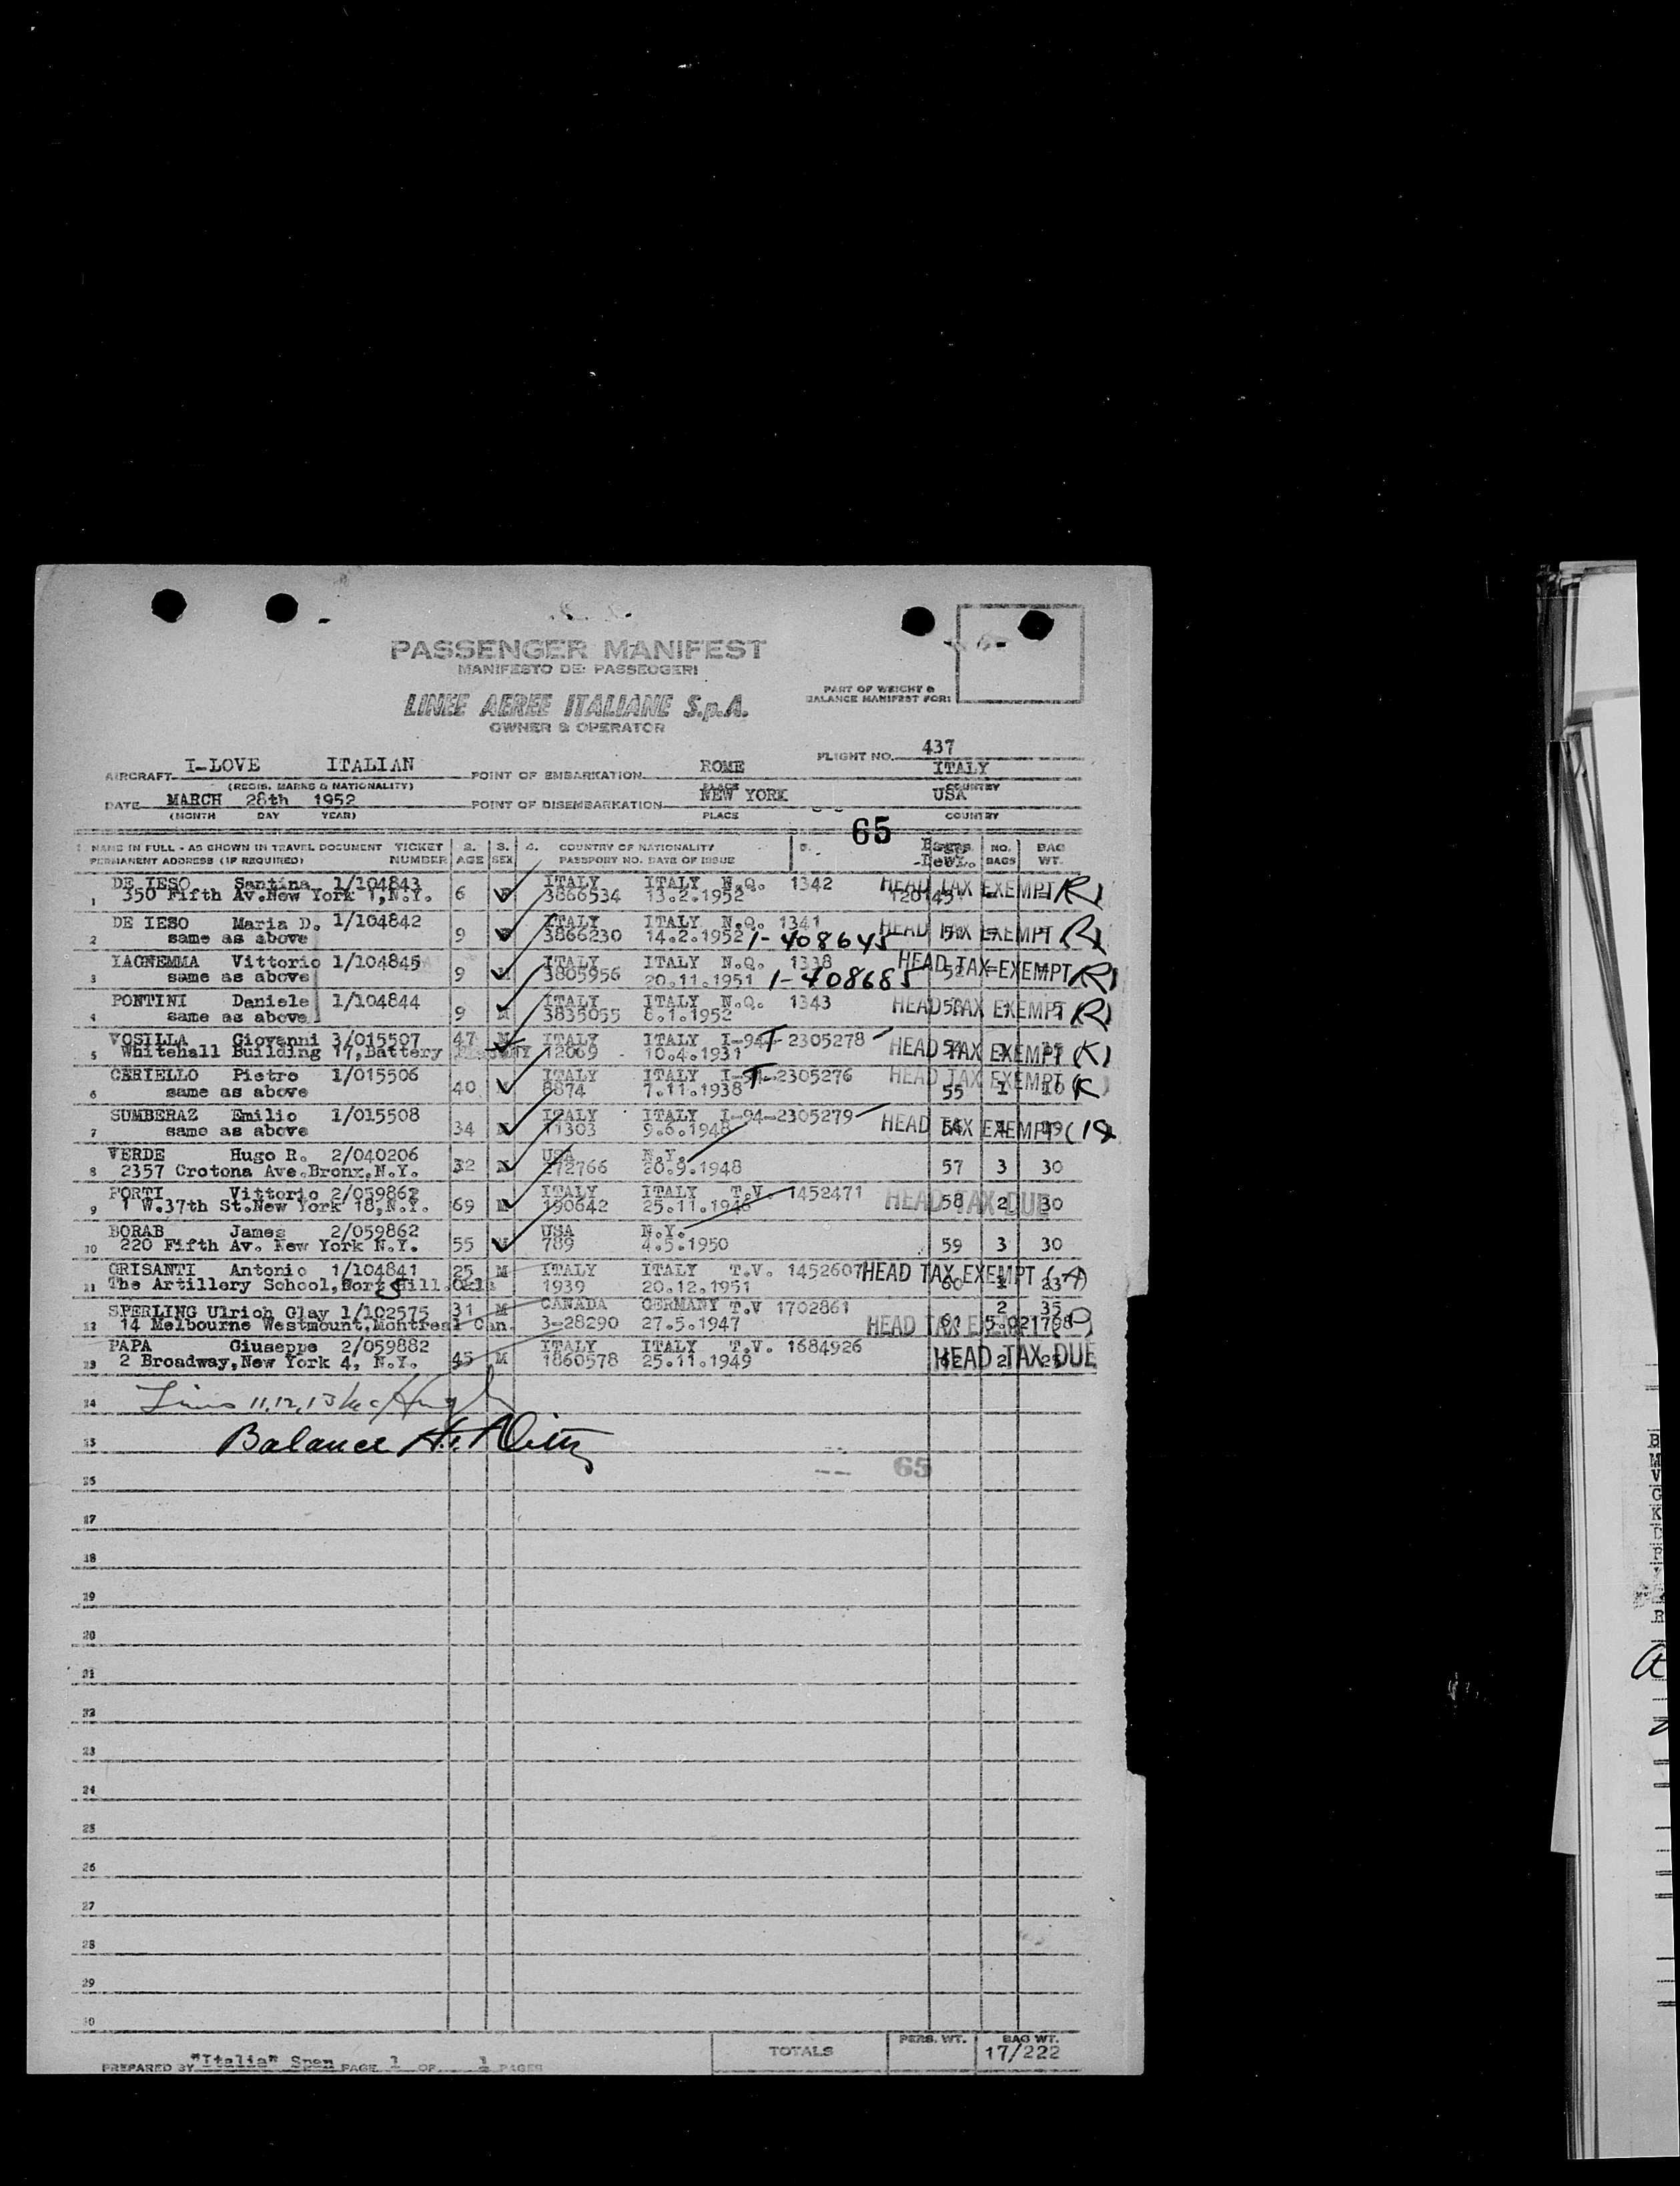 PASSENGER MANIFEST
MANIFESTO DEI PASSEGGERI
LINEE AEREE ITALIANE S.p.A.
OWNER & OPERATOR
PART OF WEIGHT &
BALANCE MANIFEST FOR:
FLIGHT NO. 437
AIRCRAFT I-LOVE ITALIAN POINT OF EMBARKATION ROME ITALY
(REGIS. MARKS & NATIONALITY) PLACE COUNTRY
DATE MARCH 28th 1952 POINT OF DISEMBARKATION NEW YORK USA
(MONTH DAY YEAR) PLACE COUNTRY
65
1. NAME IN FULL - AS SHOWN IN TRAVEL DOCUMENT TICKET 2. 3. 4. COUNTRY OF NATIONALITY 5. NO. BAG
PERMANENT ADDRESS (IF REQUIRED) NUMBER AGE SEX PASSPORT NO. DATE OF ISSUE BAGS WT.
DE IESO Santina 1/104843 ITALY ITALY N.Q. 1342 HEAD TAX EXEMPT (R)
1 350 Fifth Av.New York 1,N.Y. 6 3866534 13.2.1952 120145
DE IESO Maria D. 1/104842 ITALY ITALY N.Q. 1341 HEAD TAX EXEMPT (R)
2 same as above 9 3866230 14.2.1952 1-408645
IAGNEMMA Vittorio 1/104845 ITALY ITALY N.Q. 1338 HEAD TAX EXEMPT (R)
3 same as above 9 M 3805956 20.11.1951 1-408685 52
PONTINI Daniele 1/104844 ITALY ITALY N.Q. 1343 HEAD TAX EXEMPT (R)
4 same as above 9 M 3835055 8.1.1952
VOSILLA Giovanni 3/015507 47 M ITALY ITALY I-94T-2305278
5 Whitehall Building 17,Battery 12069 10.4.1931 HEAD TAX EXEMPT (K)
CERIELLO Pietro 1/015506 ITALY ITALY I-94T-2305276 HEAD TAX EXEMPT (K)
6 same as above 40 8874 7.11.1938 55 1 10
SUMBERAZ Emilio 1/015508 ITALY ITALY I-94-2305279 HEAD TAX EXEMPT
7 same as above 34 M 11303 9.6.1948
VERDE Hugo R. 2/040206 USA N.Y.
8 2357 Crotona Ave.Bronx,N.Y. 32 M 272766 20.9.1948 57 3 30
FORTI Vittorio 2/059862 ITALY ITALY T.V. 1452471 HEAD TAX DUE
9 1 W.37th St.New York 18,N.Y. 69 M 190642 25.11.1948 58 2 30
BORAB James 2/059862 USA N.Y.
10 220 Fifth Av. New York N.Y. 55 789 4.5.1950 59 3 30
GRISANTI Antonio 1/104841 25 M ITALY ITALY T.V. 1452607 HEAD TAX EXEMPT (A)
11 The Artillery School, 1939 20.12.1951 60 1 23
SPERLING Ulrich Glay 1/102575 31 M CANADA GERMANY T.V 1702861 2 35
12 14 Melbourne Westmount,Montreal Can. 3-28290 27.5.1947 HEAD TAX EXEMPT
PAPA Giuseppe 2/059882 ITALY ITALY T.V. 1684926
13 2 Broadway,New York 4, N.Y. 45 M 1860578 25.11.1949 62 2 HEAD TAX DUE
14 Lines 11,12,13 McHugh
15 Balance
65
16
17
18
19
20
21
22
23
24
25
26
27
28
29
30
PREPARED BY "Italia" Span PAGE 1 OF 1 PAGES TOTALS PERS. WT. BAG WT.
17/222